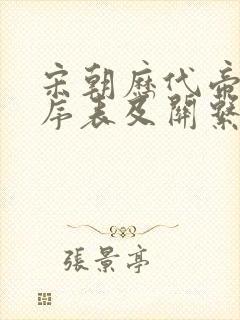 宋朝歷代帝
序表及關繫
張景亭